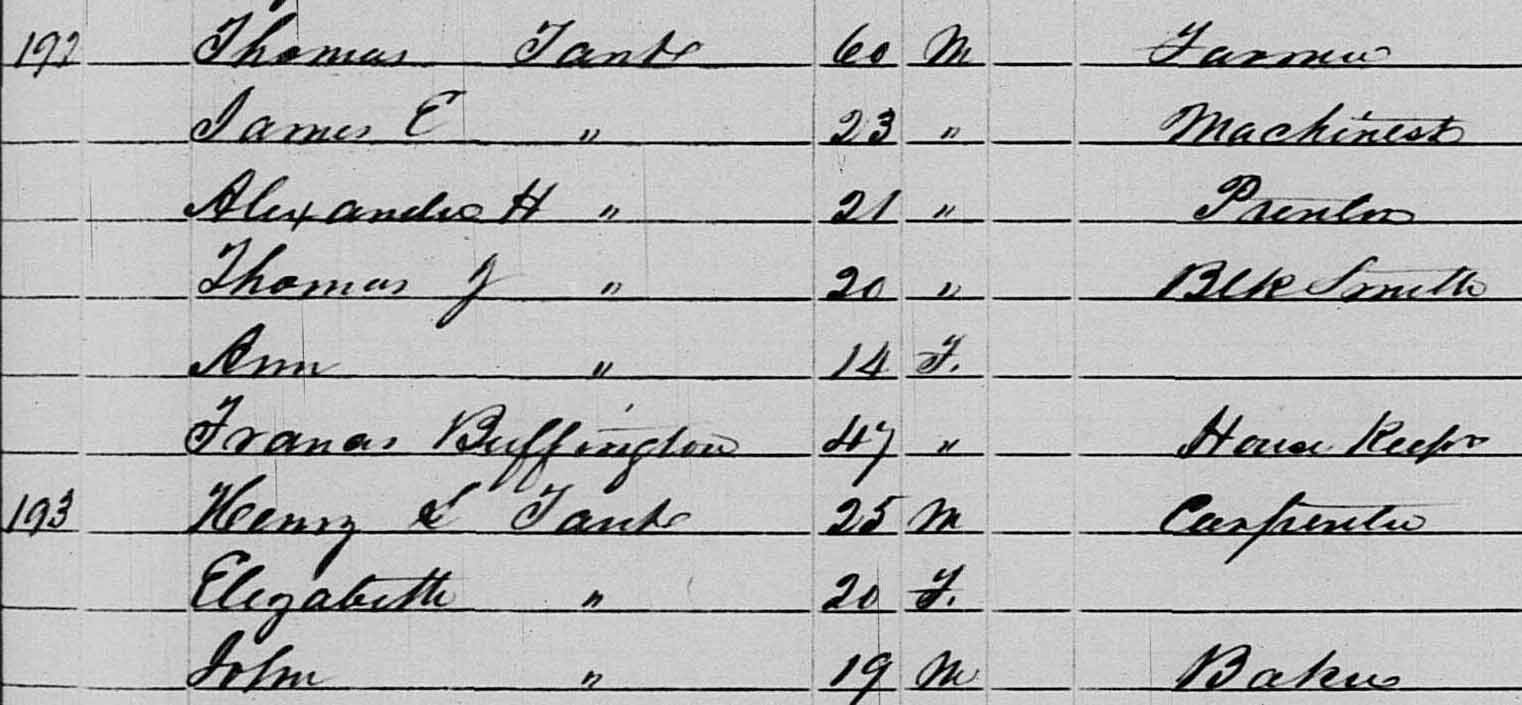 192 Thomas Tante 60 M Farmer
James E " 23 " Machinest
Alexander H " 21 " Prenter
Thomas J " 20 " Blk Smith
Ann " 14 F.
Frances Buffington 47 " House Keeper
193 Henry L Tante 25 M Carpenter
Elizabeth " 20 F.
John " 19 M Baker